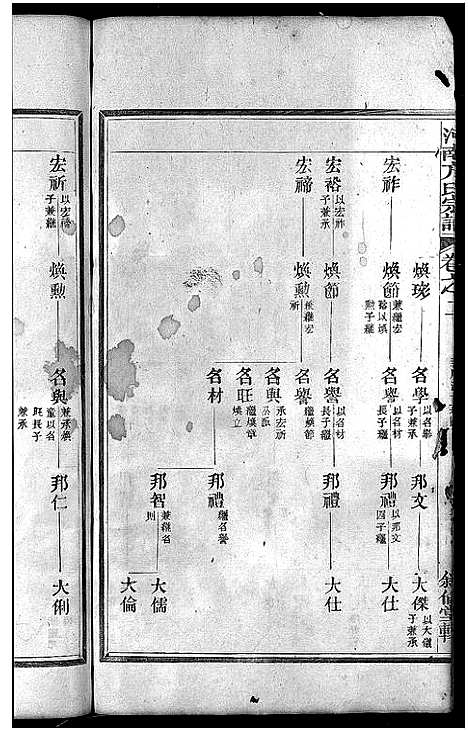 河南方氏宗譜
卷之二
敘倫堂輯
煥琰
名學 以名譽子兼承
邦文
大傑 以大儀子兼承
宏祚
煥節 兼繼宏裕以煥勳子繼
名譽 以名材長子繼
邦禮 以邦文四子繼
大仕
宏裕 以宏祚子兼承
煥節
名譽 以名材長子繼
邦禮
大仕
宏禘
煥勳 兼繼宏祈
名譽 繼煥節
名輿 承宏祈
名旺 繼煥章 煥立
名材
邦禮 繼名譽
邦智 兼繼名則
大儒
大倫
宏祈 以宏禘子兼繼
煥勳
名輿
邦仁
大俐